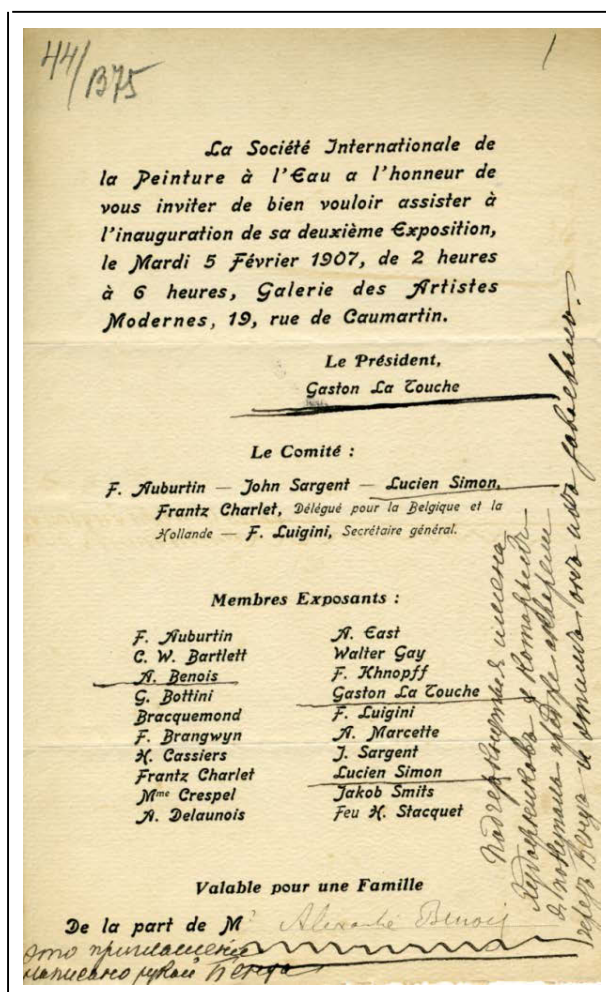 44/B75
La Société Internationale de
la Peinture à l'Eau a l'honneur de
vous inviter de bien vouloir assister à
l'inauguration de sa deuxième Exposition,
le Mardi 5 Février 1907, de 2 heures
à 6 heures, Galerie des Artistes
Modernes, 19, rue de Caumartin.
Le Président,
Gaston La Touche
Le Comité :
F. Auburtin — John Sargent — Lucien Simon,
Frantz Charlet, Délégué pour la Belgique et la
Hollande — F. Luigini, Secrétaire général.
Membres Exposants :
F. Auburtin
C. W. Bartlett
A. Benois
G. Bottini
Bracquemond
F. Brangwyn
H. Cassiers
Frantz Charlet
Mme Crespel
A. Delaunois
A. East
Walter Gay
F. Khnopff
Gaston La Touche
F. Luigini
A. Marcette
J. Sargent
Lucien Simon
Jakob Smits
Feu H. Stacquet
Valable pour une Famille
De la part de Mr Alexandre Benois
это приглашение
написано рукой Бенуа
Подчеркнутыя имена
художниковъ у которыхъ
я покупала акварели
черезъ Бенуа и онъ